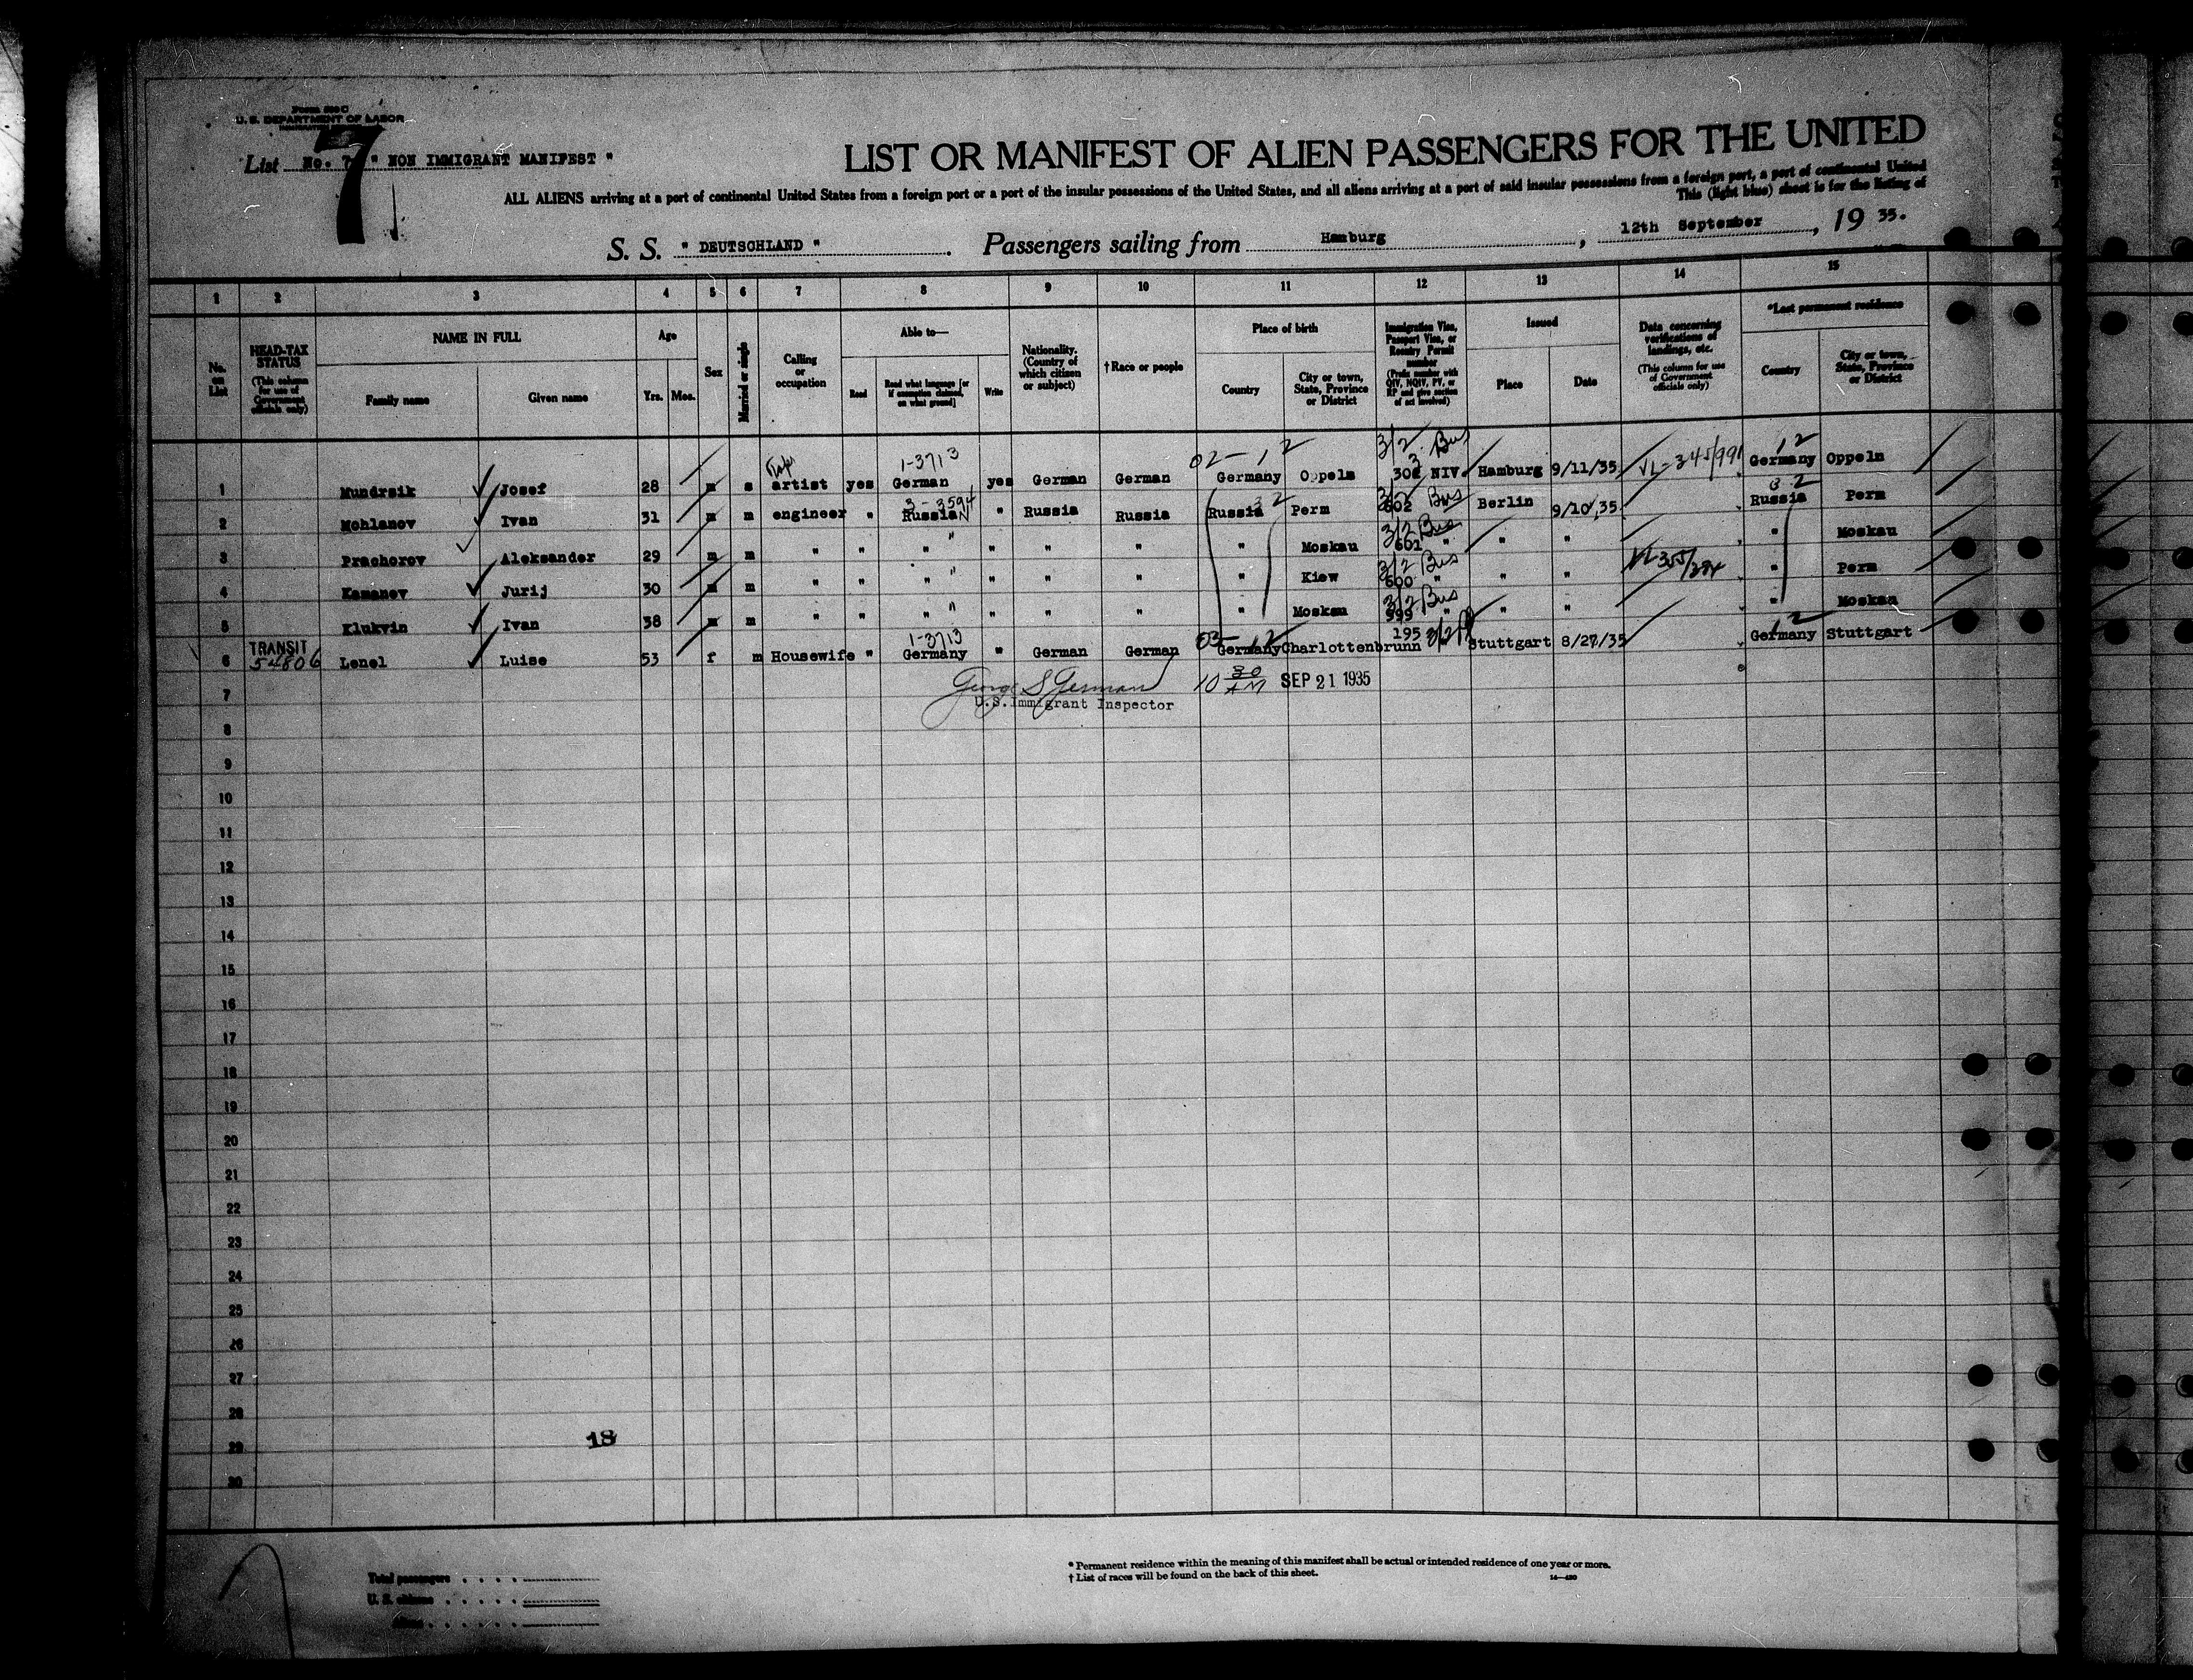 Form 500 C
U. S. DEPARTMENT OF LABOR
7
List No. 7 " NON IMMIGRANT MANIFEST "
LIST OR MANIFEST OF ALIEN PASSENGERS FOR THE UNITED
ALL ALIENS arriving at a port of continental United States from a foreign port or a port of the insular possessions of the United States, and all aliens arriving at a port of said insular possessions from a foreign port, a part of continental United
This (light blue) sheet is for the listing of
S. S. " DEUTSCHLAND ". Passengers sailing from Hamburg, 12th September, 19 35.
1 2 3 4 5 6 7 8 9 10 11 12 13 14 15
No. on List
HEAD-TAX STATUS (This column for use of Government officials only)
NAME IN FULL
Family name Given name
Age
Yrs. Mos.
Sex
Married or single
Calling or occupation
Able to—
Read Read what language [or if exemption claimed, on what ground] Write
Nationality. (Country of which citizen or subject)
† Race or people
Place of birth
Country City or town, State, Province or District
Immigration Visa, Passport Visa, or Reentry Permit number (Prefix number with QIV, NQIV, PV, or RP and give section of act involved)
Issued
Place Date
Data concerning verifications of landings, etc. (This column for use of Government officials only)
*Last permanent residence
Country City or town, State, Province or District
1-3713 02- 12 3/2 Bus 12
1 Mundrzik Josef 28 m s artist yes German yes German German Germany Oppeln 302 NIV. Hamburg 9/11/35 VL-345/991 Germany Oppeln
3-3594 32 3/2 Bus 32
2 Mohlanov Ivan 31 m m engineer " Russia N " Russia Russia Russia Perm 602 Berlin 9/10/35. Russia Perm
3/2 Bus
3 Prachorov Aleksander 29 m m " " " " " " " Moskau 601 " " " " Moskau
3/2 Bus
4 Kamanev Jurij 30 m m " " " " " " " Kiew 600 " " " VL-355/284 " Perm
3/2 Bus
5 Klukvin Ivan 38 m m " " " " " " " Moskau 599 " " " " Moskau
TRANSIT 1-3713 03- 12 12
54806
6 Lenel Luise 53 f m Housewife " Germany " German German Germany Charlottenbrunn 195 3/2 Stuttgart 8/27/35 Germany Stuttgart
George S German 10 30 AM SEP 21 1935
U.S. Immigrant Inspector
7
8
9
10
11
12
13
14
15
16
17
18
19
20
21
22
23
24
25
26
27
28
29
30
18
Total passengers
U. S. citizens
Aliens
* Permanent residence within the meaning of this manifest shall be actual or intended residence of one year or more.
† List of races will be found on the back of this sheet.
14—430